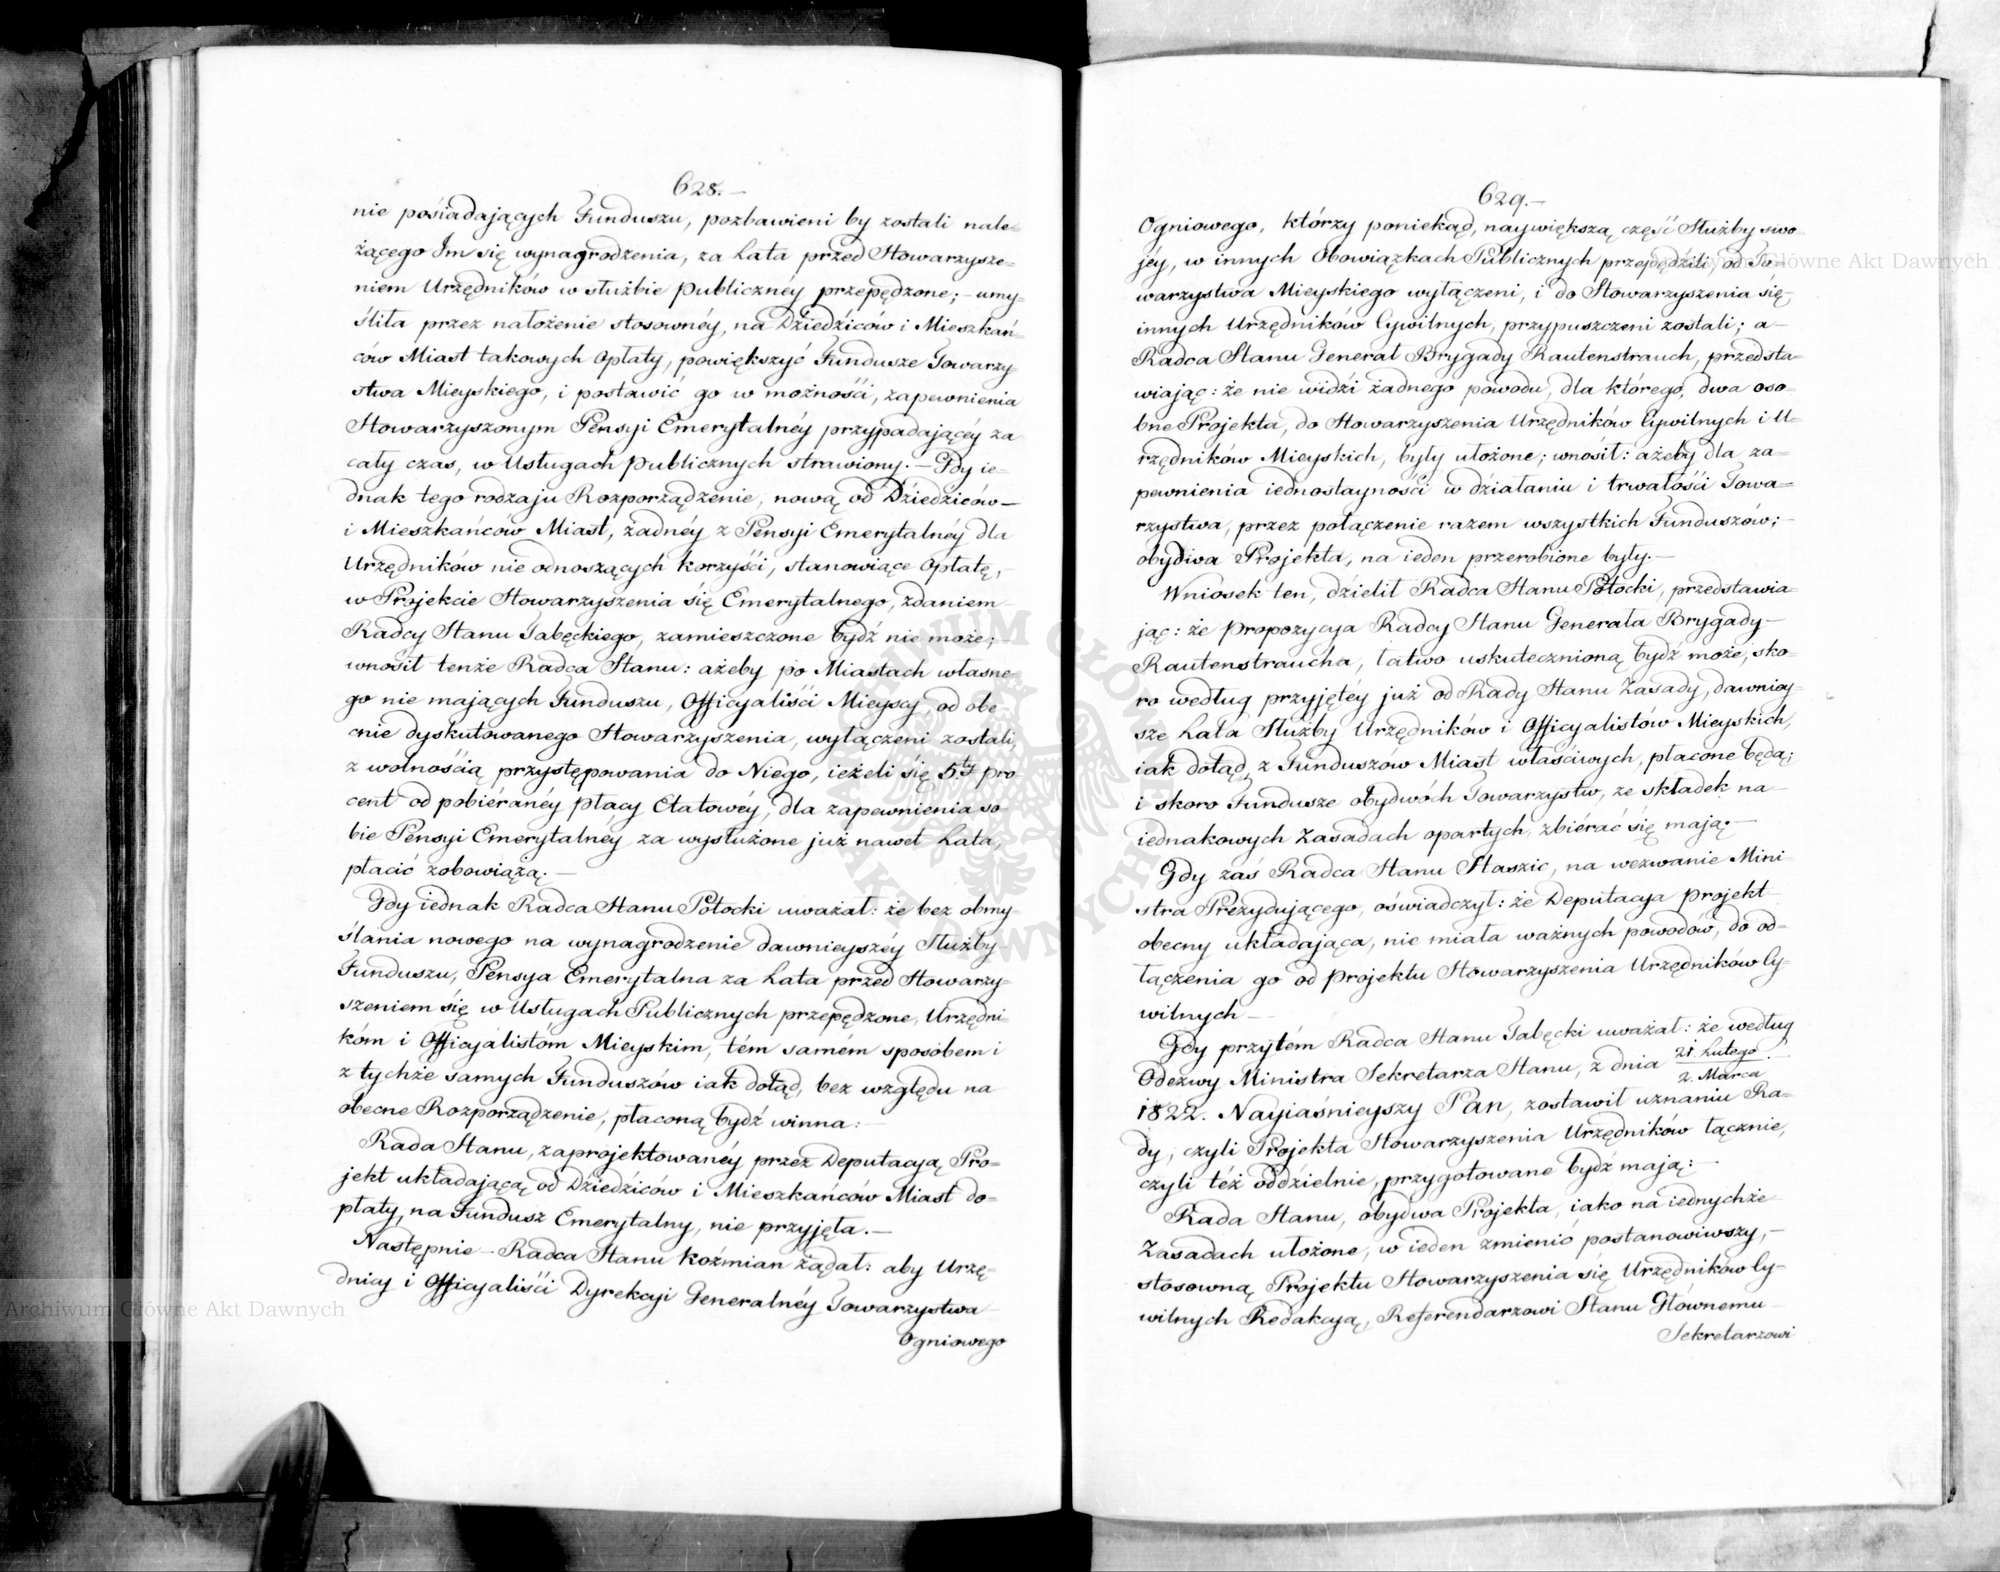 628.
nie posiadających Funduszu, pozbawieni by zostali nale-
żącego Im się wynagrodzenia, za Lata przed Stowarzysze-
niem Urzędników w służbie publicznéy przepędzone; – umy-
śliła przez nałożenie stosownéy, na Dziedziców i Mieszkań-
ców Miast takowych Opłaty, powiększyć Fundusze Towarzy-
stwa Mieyskiego, i postawić go w możnośći, zapewnienia
Stowarzyszonym Pensyi Emerytalnéy przypadającéy za
cały czas, w Usługach publicznych strawiony. – Gdy ie-
dnak tego rodzaju Rozporządzenie, nową od Dziedziców –
i Mieszkańców Miast, żadnéy z Pensyi Emerytalnéy dla
Urzędników nie odnoszących korzyśći, stanowiące Opłatę, –
w Projekcie Stowarzyszenia się Emerytalnego, zdaniem
Radcy Stanu Tabęckiego, zamieszczone bydź nie może; –
wnosił tenże Radca Stanu: ażeby po Miastach własne-
go nie mających Funduszu, Officyaliśći Mieyscy, od obe
cnie dyskutowanego Stowarzyszenia, wyłączeni zostali,
z wolnośćią przystępowania do Niego, ieżeli się 5.ty pro
cent od pobiéranéy płacy Etatowéy, dla zapewnienia so
bie Pensyi Emerytalnéy za wysłużone już nawet Lata,
płacić zobowiążą. –
Gdy iednak Radca Stanu Potocki uważał: że bez obmy-
ślania nowego na wynagrodzenie dawnieyszéy Służby
Funduszu, Pensya Emerytalna za Lata przed Stowarzy-
szeniem się w Usługach Publicznych przepędzone, Urzędni-
kóm i Officyalistóm Mieyskim, tém samém sposobem i
z tychże samych Funduszów iak dotąd, bez względu na
obecne Rozporządzenie, płaconą bydź winna: –
Rada Stanu, zaprojektowanéy przez Deputacyą Pro-
jekt układającą, od Dziedziców i Mieszkańców Miast do-
płaty, na Fundusz Emerytalny, nie przyjęła. –
Następnie – Radca Stanu Koźmian żądał: aby Urzę-
dnicy i Officyaliśći Dyrekcyi Generalnéy Towarzystwa
Ogniowego
629. –
Ogniowego, którzy poniekąd, naywiększą część Służby swo
jéy, w innych Obowiązkach Publicznych przepędzili, od To-
warzystwa Mieyskiego wyłączeni, i do Stowarzyszenia się –
innych Urzędników Cywilnych, przypuszczeni zostali; a –
Radca Stanu Generał Brygady Rautenstrauch, przedsta-
wiając: że nie widźi żadnego powodu, dla którego, dwa oso-
bne Projekta, do Stowarzyszenia Urzędników Cywilnych i U-
rzędników Mieyskich, były ułożone; wnosił: ażeby dla za-
pewnienia iednostaynośći w działaniu i trwałośći Towa-
rzystwa, przez połączenie razem wszystkich Funduszów; –
obydwa Projekta, na ieden przerobione były. –
Wniosek ten, dzielił Radca Stanu Potocki, przedstawia-
jąc: że propozycya Radcy Stanu Generała Brygady –
Rautenstraucha, łatwo uskutecznioną bydź może, sko-
ro według przyjętéy już od Rady Stanu Zasady, dawniey-
sze Lata Służby Urzędników i Officyalistów Mieyskich,
iak dotąd, z Funduszów Miast właściwych, płacone będą;
i skoro Fundusze obydwóch Towarzystw, ze składek na –
iednakowych Zasadach opartych, zbiérać się mają. –
Gdy zaś Radca Stanu Staszic, na wezwanie Mini-
stra Prezydującego, oświadczył: że Deputacya projekt
obecny układająca, nie miała ważnych powodów, do od-
łączenia go od projektu Stowarzyszenia Urzędników Cy-
wilnych –
Gdy przytém Radca Stanu Tabęcki uważał: że według
Odezwy Ministra Sekretarza Stanu, z dnia 21. Lutego
2. Marca
1822. Nayjaśnieyszy Pan, zostawił uznaniu Ra-
dy, czyli Projekta Stowarzyszenia Urzędników łącznie,
czyli téż oddzielnie, przygotowane bydź mają: –
Rada Stanu, obydwa Projekta, iako na iednychże
Zasadach ułożone, w ieden zmienić postanowiwszy, –
stosowną Projektu Stowarzyszenia się Urzędników Cy-
wilnych Redakcyą, Referendarzowi Stanu Głównemu
Sekretarzowi
Archiwum Główne Akt Dawnych
Archiwum Główne Akt Dawnych
ARCHIWUM GŁÓWNE AKT DAWNYCH